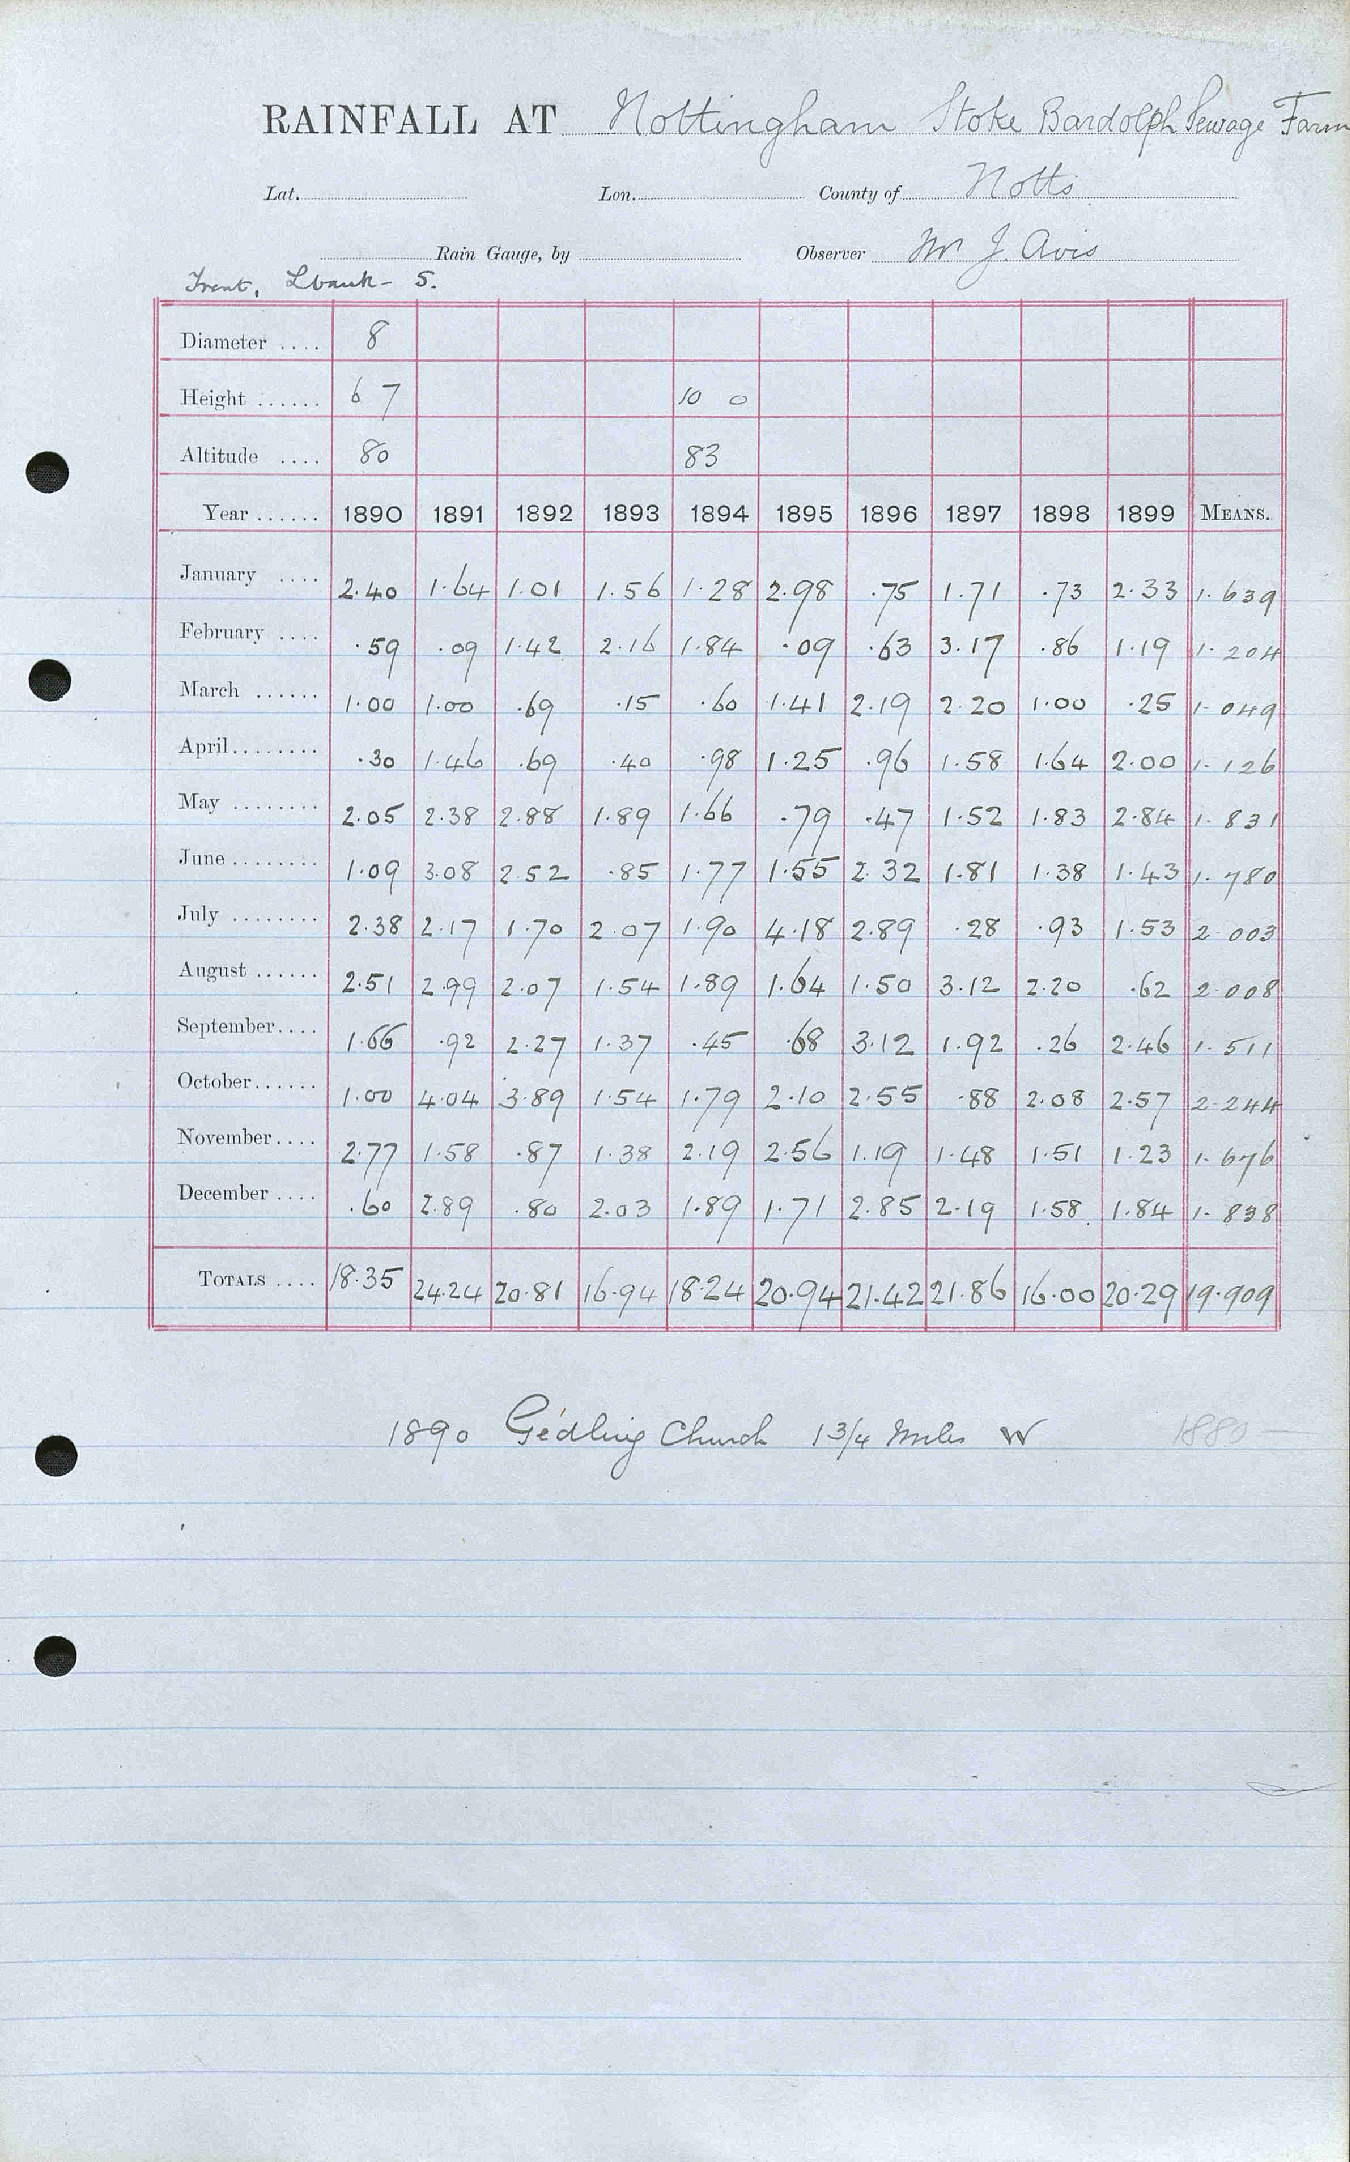 RAINFALL AT Nottingham Stoke Bardolph Sewage Farm
Lat. Lon. County of Notts
Rain Gauge, by Observer Mr J Avis
Trent, L bank - S.
Diameter .... 8
Height ...... 6 7 10 0
Altitude .... 80 83
Year ...... 1890 1891 1892 1893 1894 1895 1896 1897 1898 1899 MEANS.
January .... 2.40 1.64 1.01 1.56 1.28 2.98 .75 1.71 .73 2.33 1.639
February .... .59 .09 1.42 2.16 1.84 .09 .63 3.17 .86 1.19 1.204
March ...... 1.00 1.00 .69 .15 .60 1.41 2.19 2.20 1.00 .25 1.049
April ........ .30 1.46 .69 .40 .98 1.25 .96 1.58 1.64 2.00 1.126
May ........ 2.05 2.38 2.88 1.89 1.66 .79 .47 1.52 1.83 2.84 1.831
June ........ 1.09 3.08 2.52 .85 1.77 1.55 2.32 1.81 1.38 1.43 1.780
July ........ 2.38 2.17 1.70 2.07 1.90 4.18 2.89 .28 .93 1.53 2.003
August ...... 2.51 2.99 2.07 1.54 1.89 1.64 1.50 3.12 2.20 .62 2.008
September .... 1.66 .92 2.27 1.37 .45 .68 3.12 1.92 .26 2.46 1.511
October ...... 1.00 4.04 3.89 1.54 1.79 2.10 2.55 .88 2.08 2.57 2.244
November .... 2.77 1.58 .87 1.38 2.19 2.56 1.19 1.48 1.51 1.23 1.676
December .... .60 2.89 .80 2.03 1.89 1.71 2.85 2.19 1.58 1.84 1.838
TOTALS .... 18.35 24.24 20.81 16.94 18.24 20.94 21.42 21.86 16.00 20.29 19.909
1890 Gedling Church 1 3/4 Miles W 1880